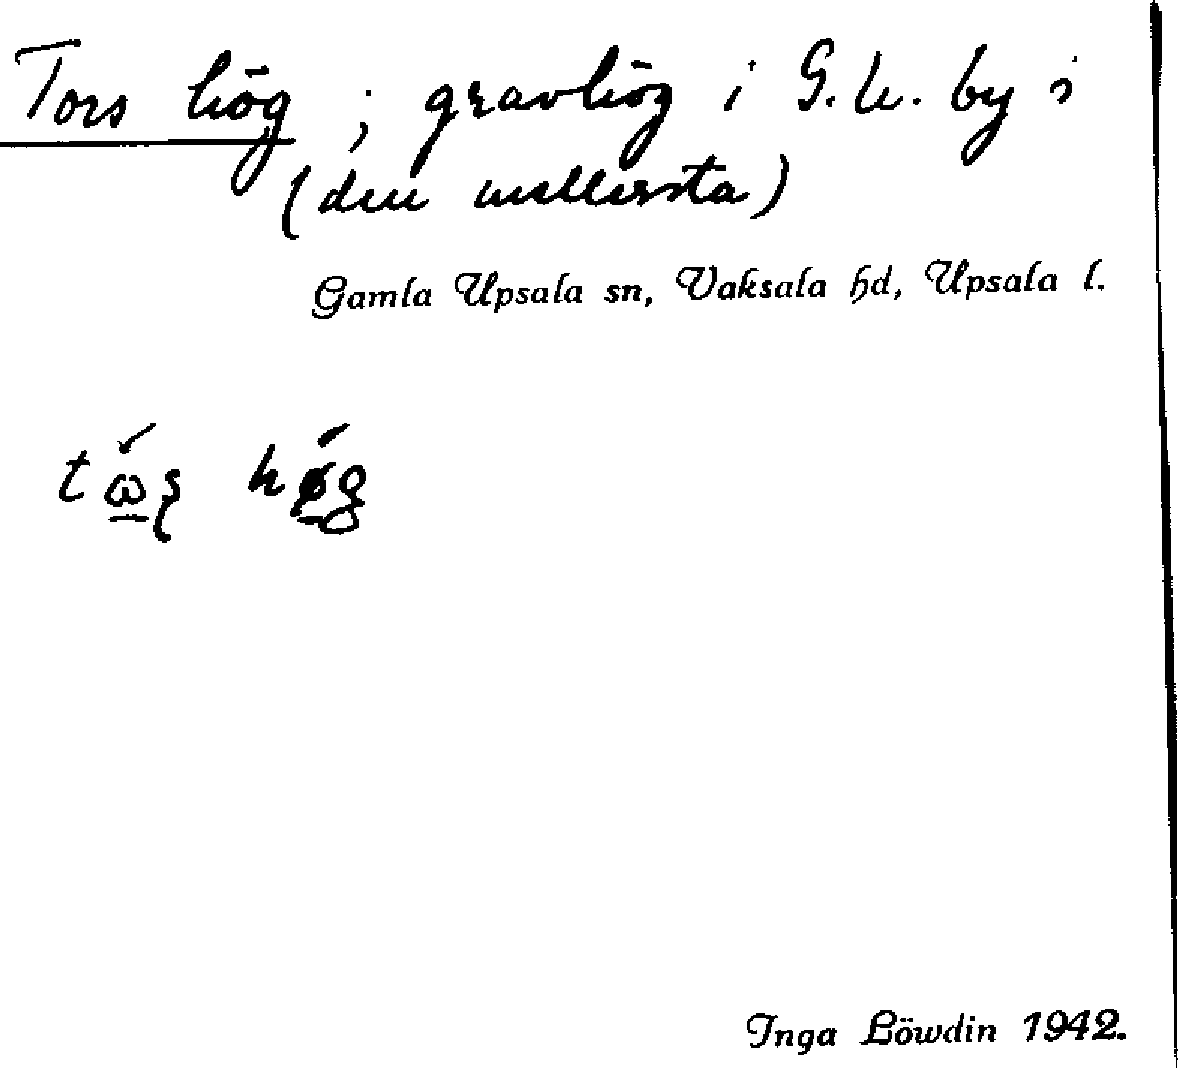 Tors hög ; gravhög i G. U. by i
(den mellersta)
Gamla Upsala sn, Vaksala hd, Upsala l.
Inga Löwdin 1942.